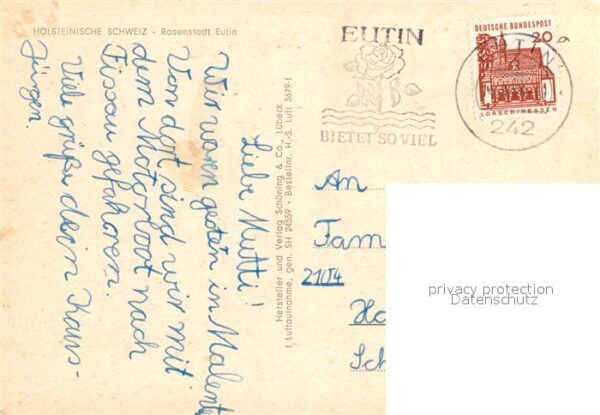 HOLSTEINISCHE SCHWEIZ - Rosenstadt Eutin
Liebe Mutti!
Wir waren gestern in Malente
Von dort sind wir mit
dem Motorboot nach
Fissau gefahren.
Viele grüße dein Kaus-
Jürgen
Hersteller und Verlag Schöning & Co., Lübeck
Luftaufnahme, gen. SH 24559 - Bestellnr. H.-S. Luft 3679-1
EUTIN
BIETET SO VIEL
DEUTSCHE BUNDESPOST
20
LORSCH/HESSEN
EUTIN
242
An
Fam
2104
Ha
Sch
privacy protection
Datenschutz